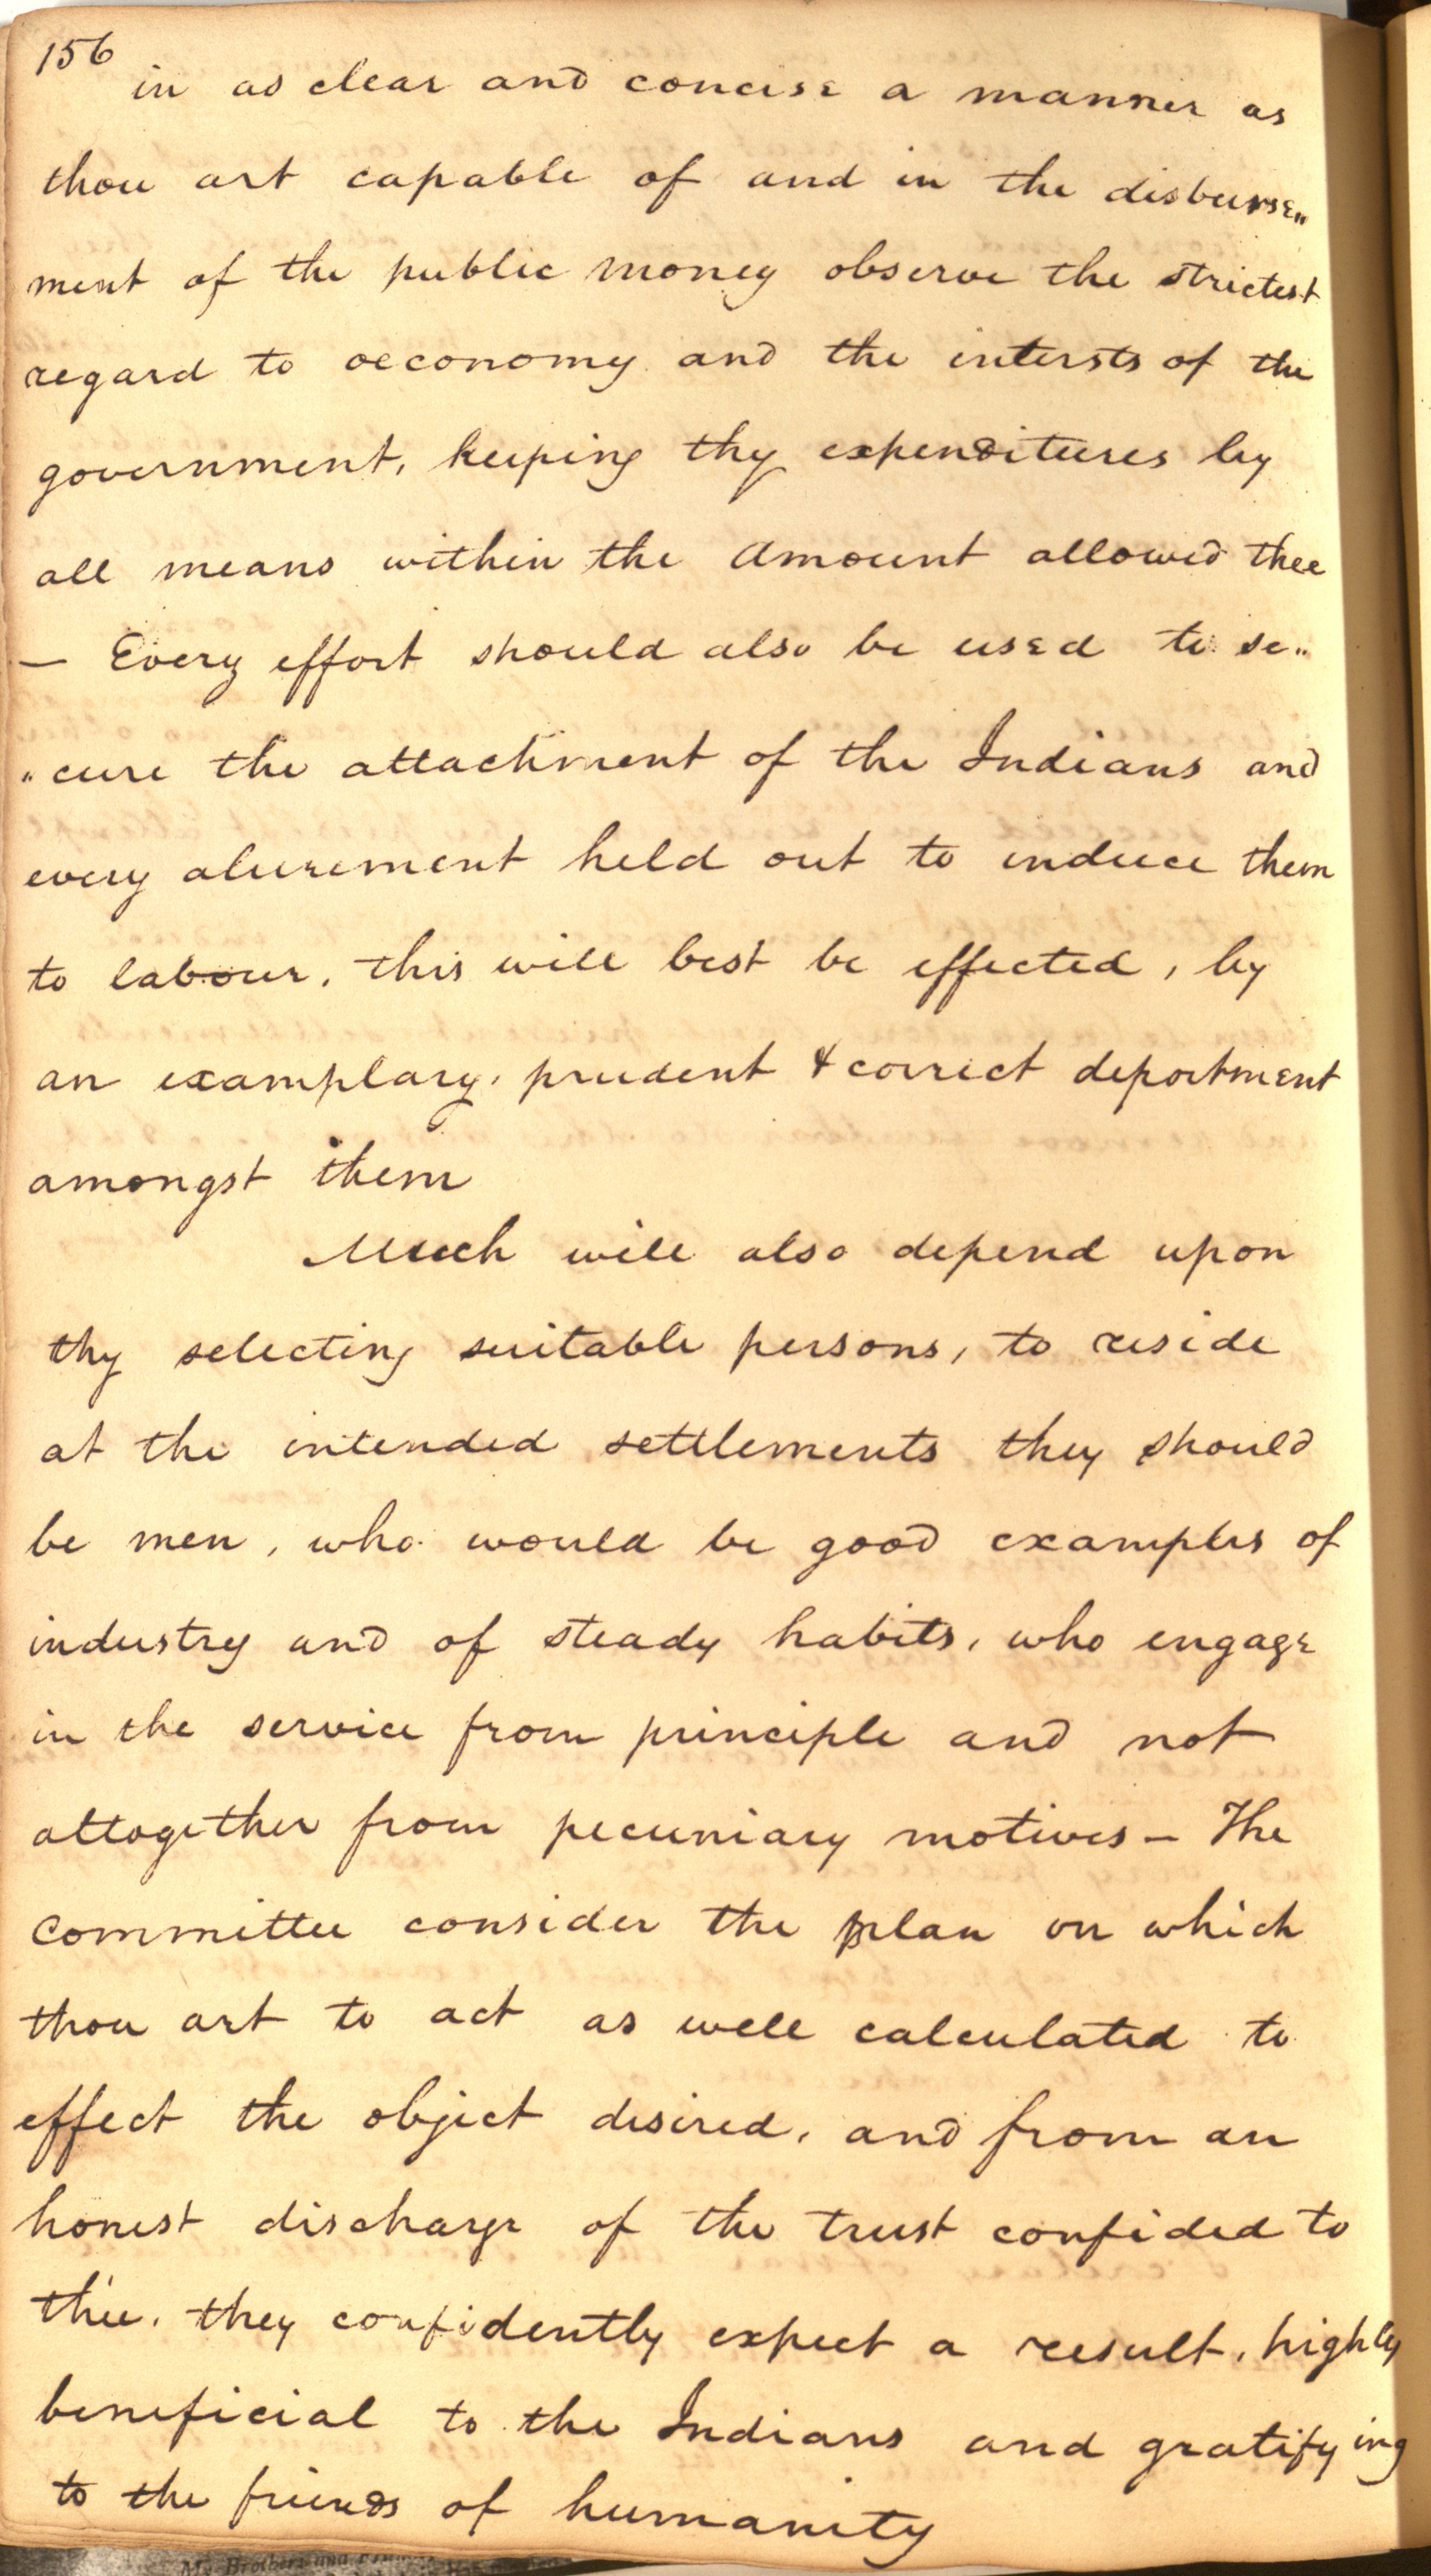 156
in as clear and concise a manner as
thou art capable of and in the disburse„
ment of the public money observe the strictest
regard to oeconomy and the intersts of the
government, keeping thy expenditures by
all means within the amount allowed thee
— Every effort should also be used to se„
„cure the attachment of the Indians and
every alurement held out to induce them
to labour, this will best be effected, by
an examplary, prudent & correct deportment
amongst them
Much will also depend upon
thy selecting suitable persons, to reside
at the intended settlements they should
be men, who would be good examples of
industry and of steady habits, who engage
in the service from principle and not
altogether from pecuniary motives — The
committee consider the plan on which
thou art to act as well calculated to
effect the object desired, and from an
honest discharge of the trust confided to
thee, they confidently expect a result, highly
beneficial to the Indians and gratifying
to the friends of humanity
My Brothers and